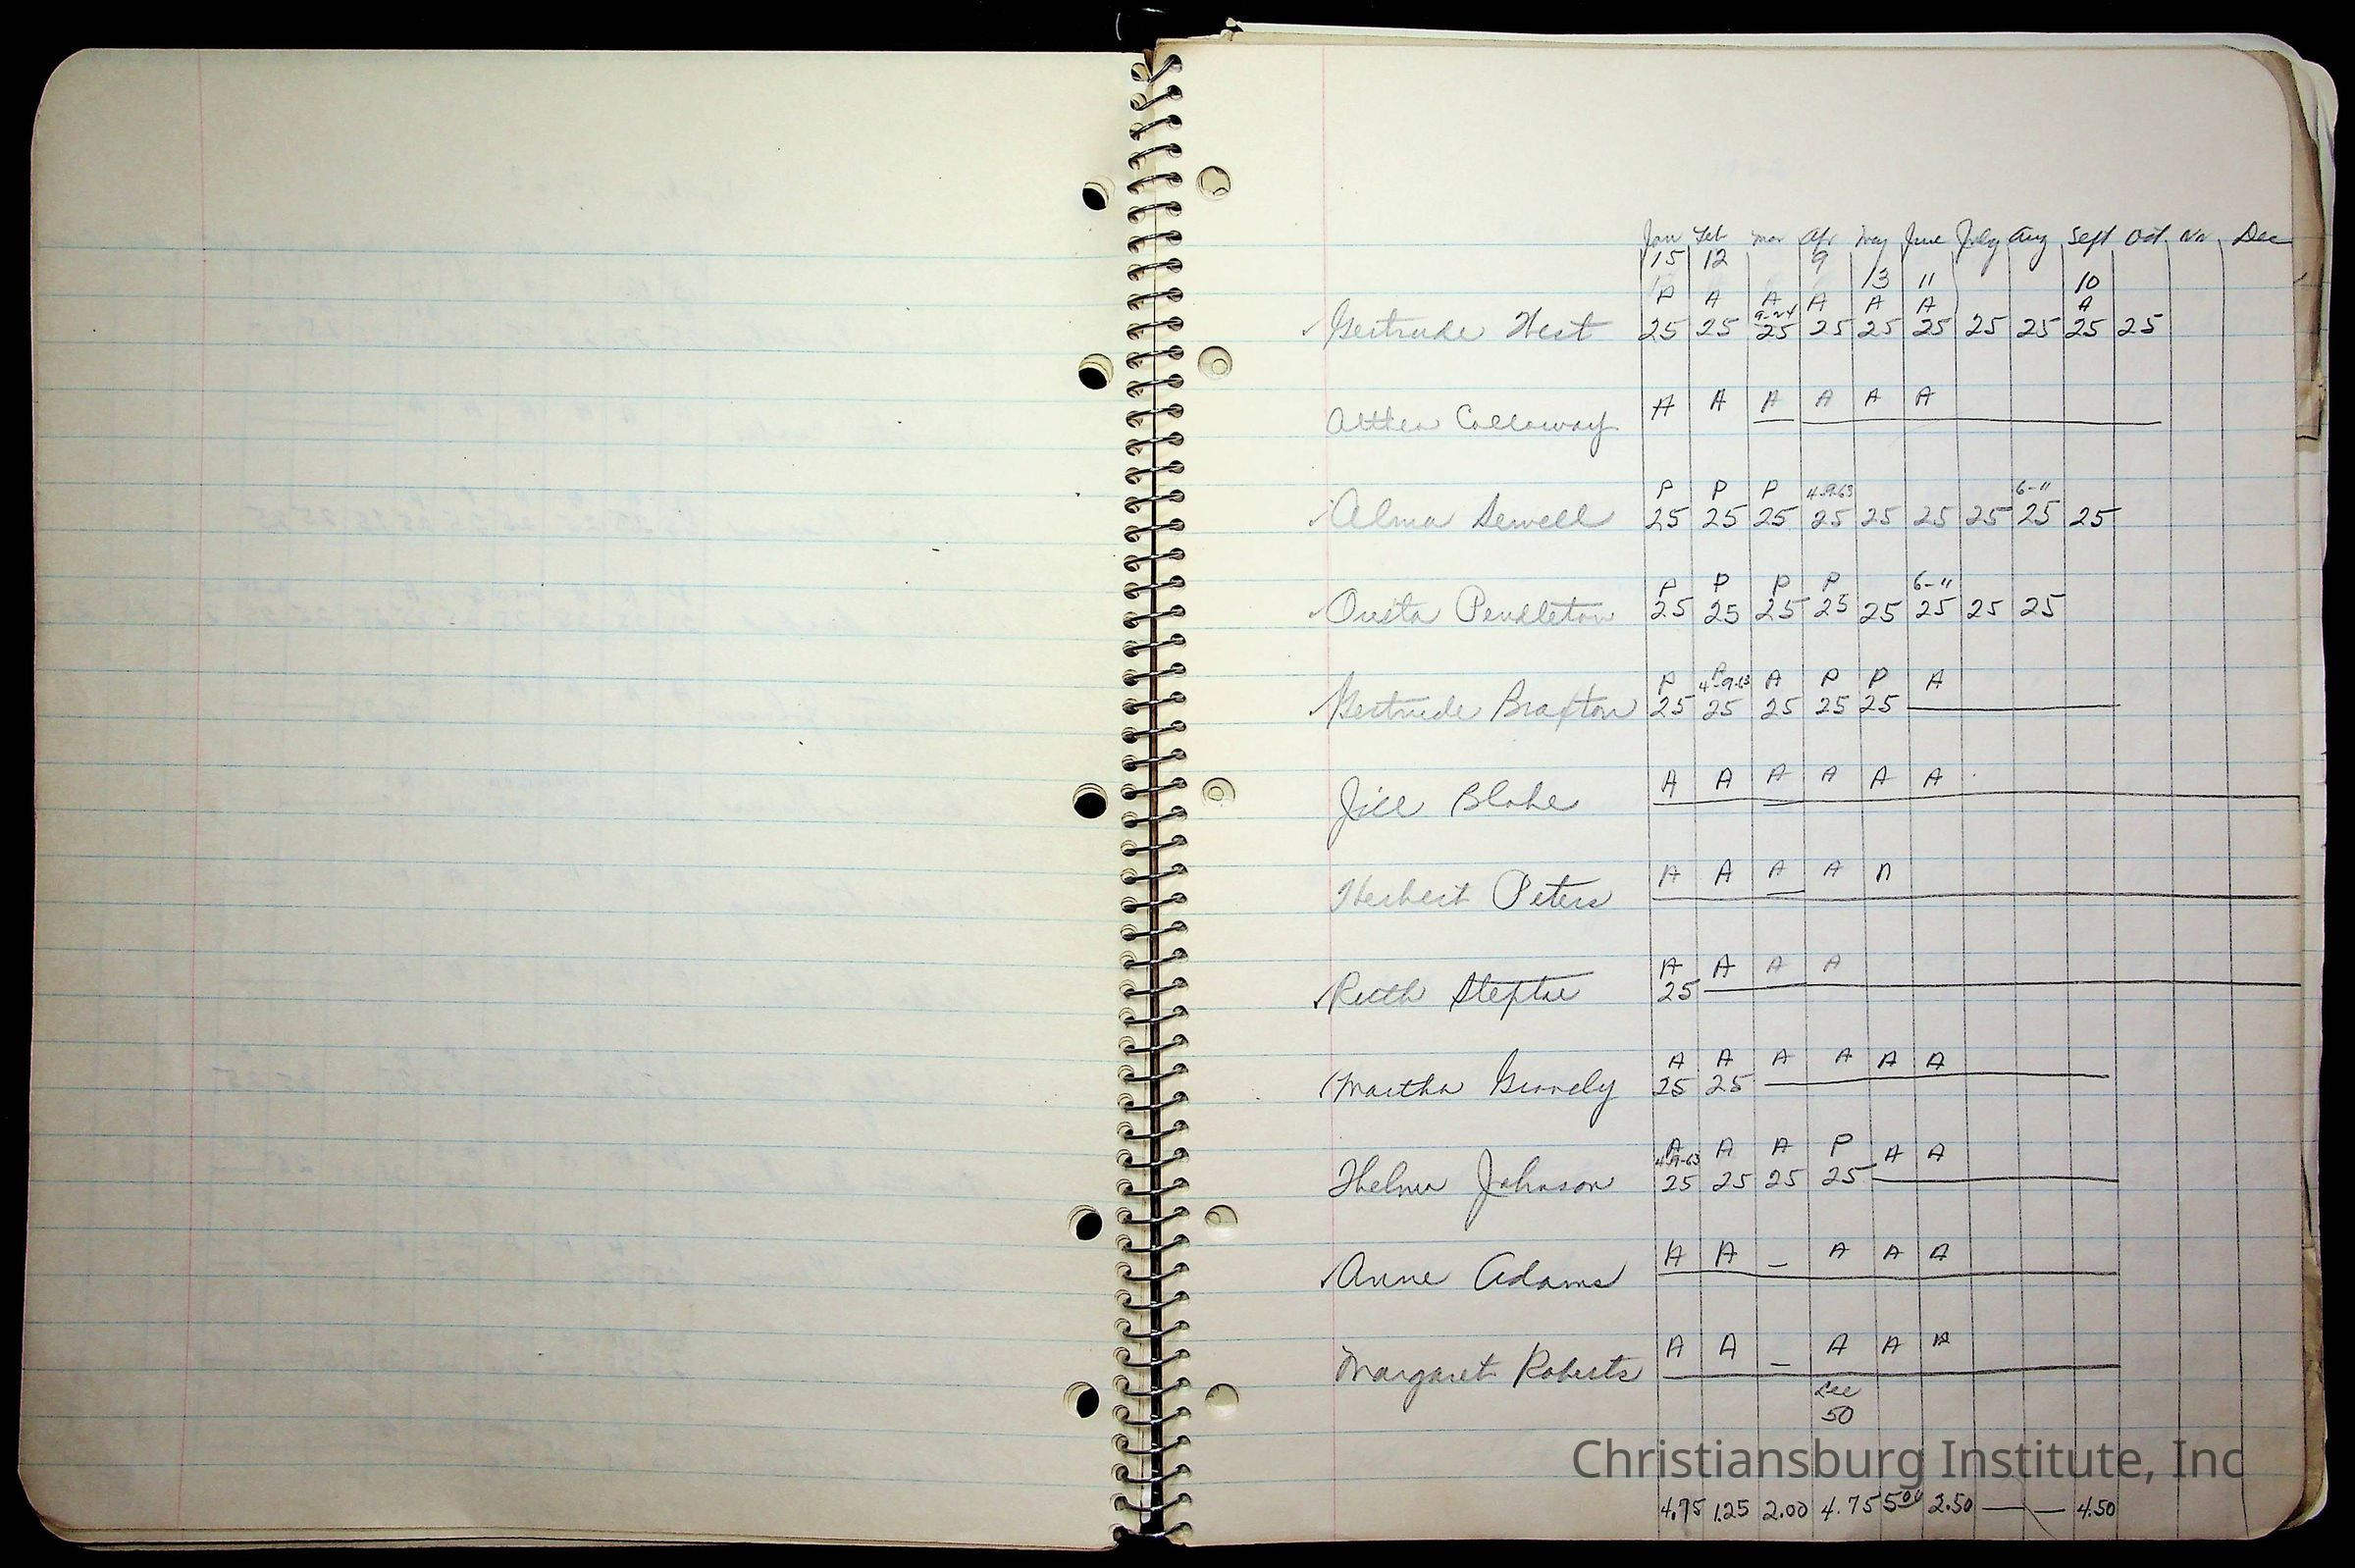 Jan Feb Mar Apr May June July Aug Sept Oct Nv Dec
15 12 9
13 11 10
P A A A A A A
9-24
Gertrude West 25 25 25 25 25 25 25 25 25 25
A A A A A A
Althea Calloway
P P P 4-9-63 6-11
Alma Sewell 25 25 25 25 25 25 25 25 25
P P P P 6-11
Ousta Pendleton 25 25 25 25 25 25 25 25
P P A P P A
4-9-63
Gertrude Braxton 25 25 25 25 25
A A A A A A
Jill Blake
A A A A A
Herbert Peters
A A A A
Ruth Steptoe 25
A A A A A A
Martha Gravely 25 25
A A A P A A
4-9-63
Thelma Johnson 25 25 25 25
A A – A A A
Anne Adams
A A – A A A
Margaret Roberts
Dee
50
Christiansburg Institute, Inc
4.75 1.25 2.00 4.75 5.00 2.50 — — 4.50